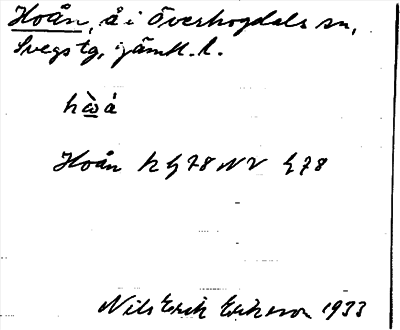 Hoån, å i Överhogdals sn,
Svegs tg, Jämtl. l.
hὼá
Hoån h Ḡ 78 NV
Nils Erik Eriksson 1933